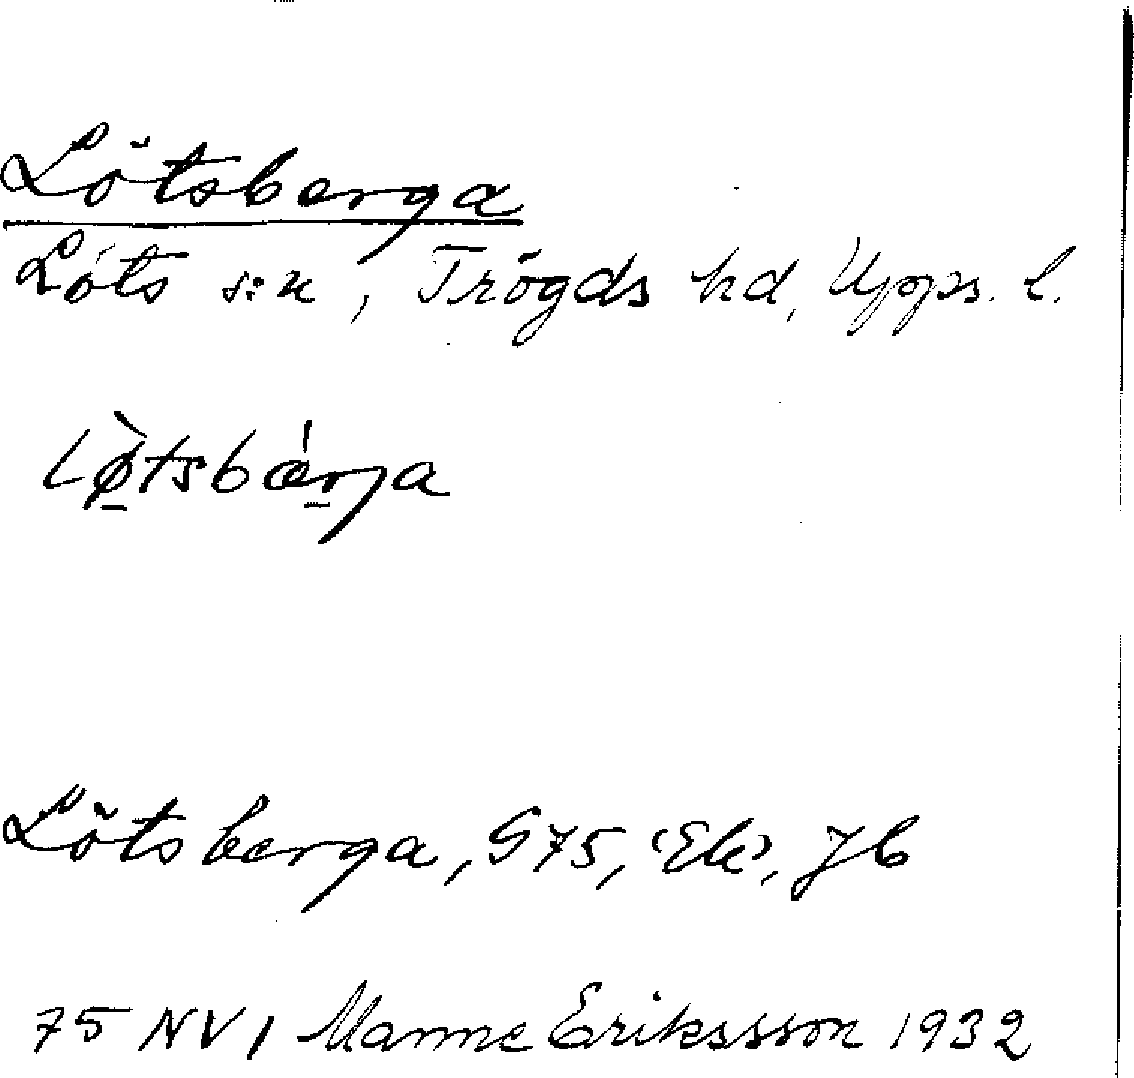 Lötsberga
Löts s:n, Trögds hd, Upps. l.
Lø̀tsbǽrja
Lötsberga, G75, (Ek), Jb
75 NV 1 Manne Eriksson 1932